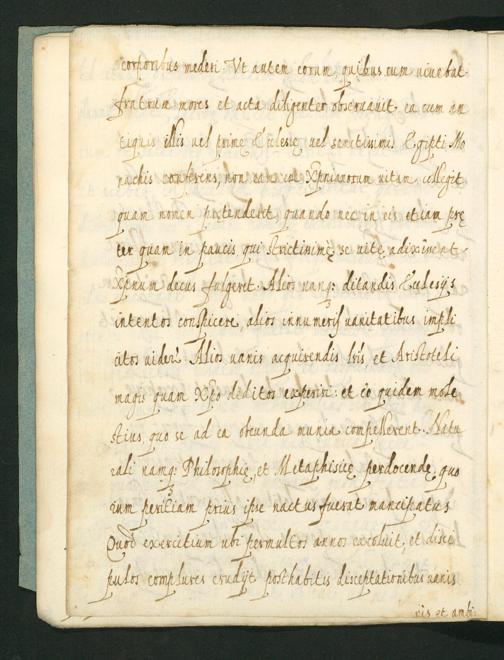 corporibus mederi. Ut autem eorum quibus cum vivebat
fratrum mores et acta diligenter observavit. ea cum an
tiquis illis vel prime Ecclesie vel senctissimi Egipti Mo
nachis conferens, non eam vel Xprianorum vitam collegit
quam nomen pretenderet, quando nec in eis etiam pre
ter quam in paucis qui strictissime se vite adixerant
Xpnum decus fulgeret. Alios namq; ditandis Ecclesijs
intentos conspicere, alios innumeris vanitatibus impli
citos videri. Alios vanis acquirendis lris, et Aristoteli
magis quam Xpo deditos experiri: et eo quidem mole
stius, quo se ad ea obeunda munia compellerent. Natu
rali namq; Philosophie, et Metaphisice perdocende, quo
rum peritiam prius ipse nactus fuerat mancipatus
Quod exercitium ubi permultos annos excoluit, et disci
pulos complures erudijt posthabitis disceptationibus vanis
ris et ambi